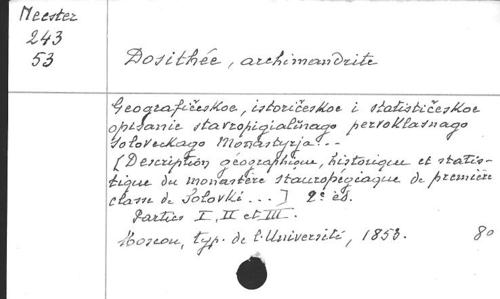 Meester
243
53
Dosithée, archimandrite
Geografičeskoe, istoričeskoe i statističeskoe
opisanie stavropigial'nago pervoklasnago
Soloveckago Monastyrja...
[Description géographique, historique et statis-
tique du monastère stauropégiaque de première
classe de Solovki ...] 2e éd.
Parties I, II et III.
Moscou, typ. de l'Université, 1853. 8o